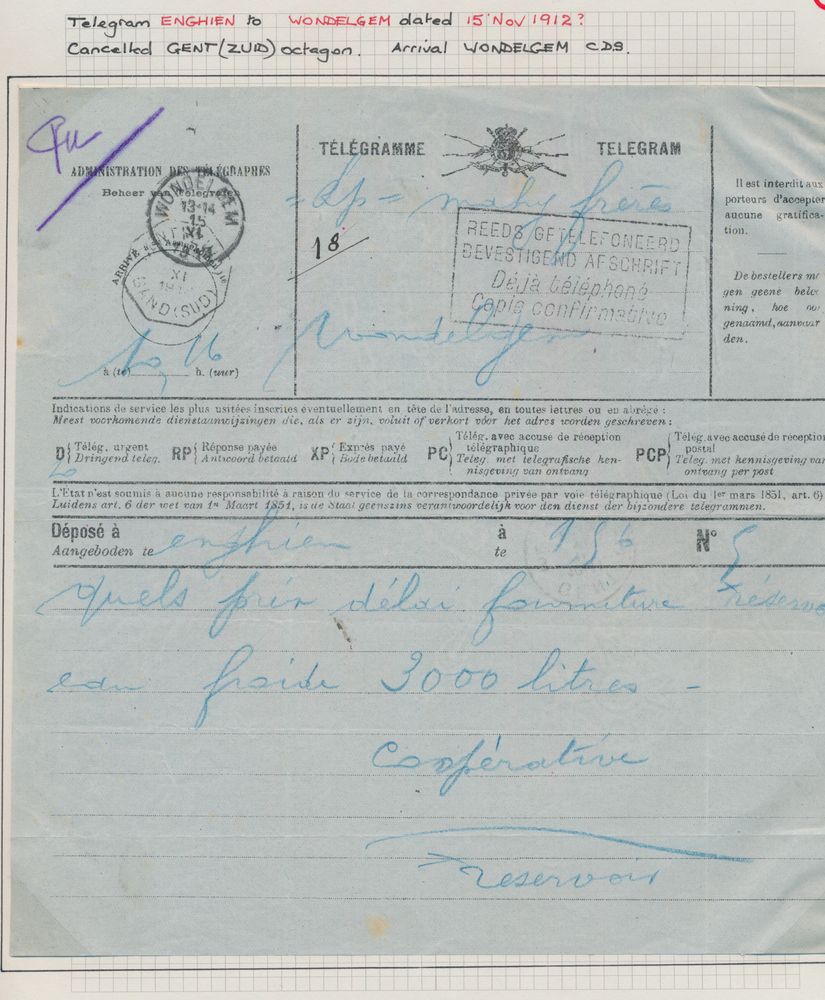 Telegram ENGHIEN to WONDELGEM dated 15 Nov 1912?
Cancelled GENT (ZUID) octagon. Arrival WONDELGEM CDS.
TÉLÉGRAMME TELEGRAM
ADMINISTRATION DES TÉLÉGRAPHES
Beheer van Telegrafen
WONDELGEM
13-14
15
XI
GAND (SUD)
XI
= Rp = mahy frères
18
REEDS GETELEFONEERD
BEVESTIGEND AFSCHRIFT
Déjà téléphoné
Copie confirmative
Il est interdit aux
porteurs d'accepter
aucune gratifica-
tion.
De bestellers mo
gen geene belo
ning, hoe oo
genaamd, aanvaar
den.
Wondelgem
à (te) h. (uur)
Indications de service les plus usitées inscrites éventuellement en tête de l'adresse, en toutes lettres ou en abrégé :
Meest voorkomende dienstaanwijzingen die, als er zijn, voluit of verkort vóór het adres worden geschreven :
D Télég. urgent
Dringend teleg.
RP Réponse payée
Antwoord betaald
XP Exprès payé
Bode betaald
PC Télég. avec accusé de réception
télégraphique
Teleg. met telegrafische ken-
nisgeving van ontvang
PCP Télég. avec accusé de réception
postal
Teleg. met kennisgeving van
ontvang per post
L'État n'est soumis à aucune responsabilité à raison du service de la correspondance privée par voie télégraphique (Loi du 1er mars 1851, art. 6)
Luidens art. 6 der wet van 1n Maart 1851, is de Staat geenszins verantwoordelijk voor den dienst der bijzondere telegrammen.
Déposé à enghien à 156 No 5
Aangeboden te te
quels prix délai fourniture réservo
eau froide 3000 litres -
coopérative
reservoir